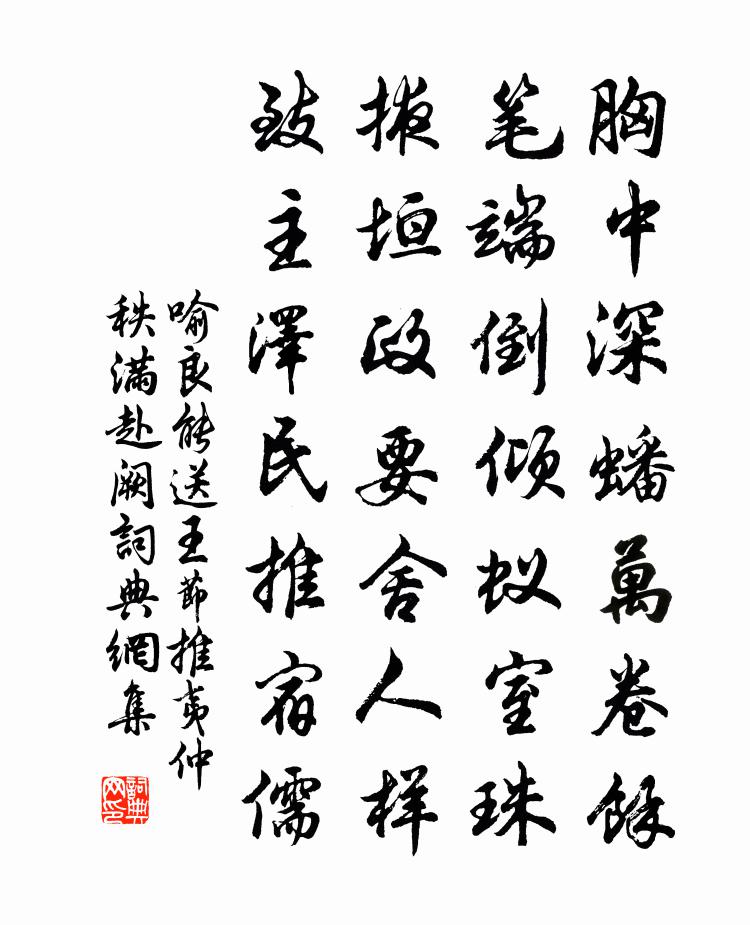 胸中深蟠萬卷餘
笔端倒倾蚁室珠
掖垣政要舍人样
致主澤民推宿儒
喻良能送王節推夷仲
秩滿赴闕詞典網集
詞典网印